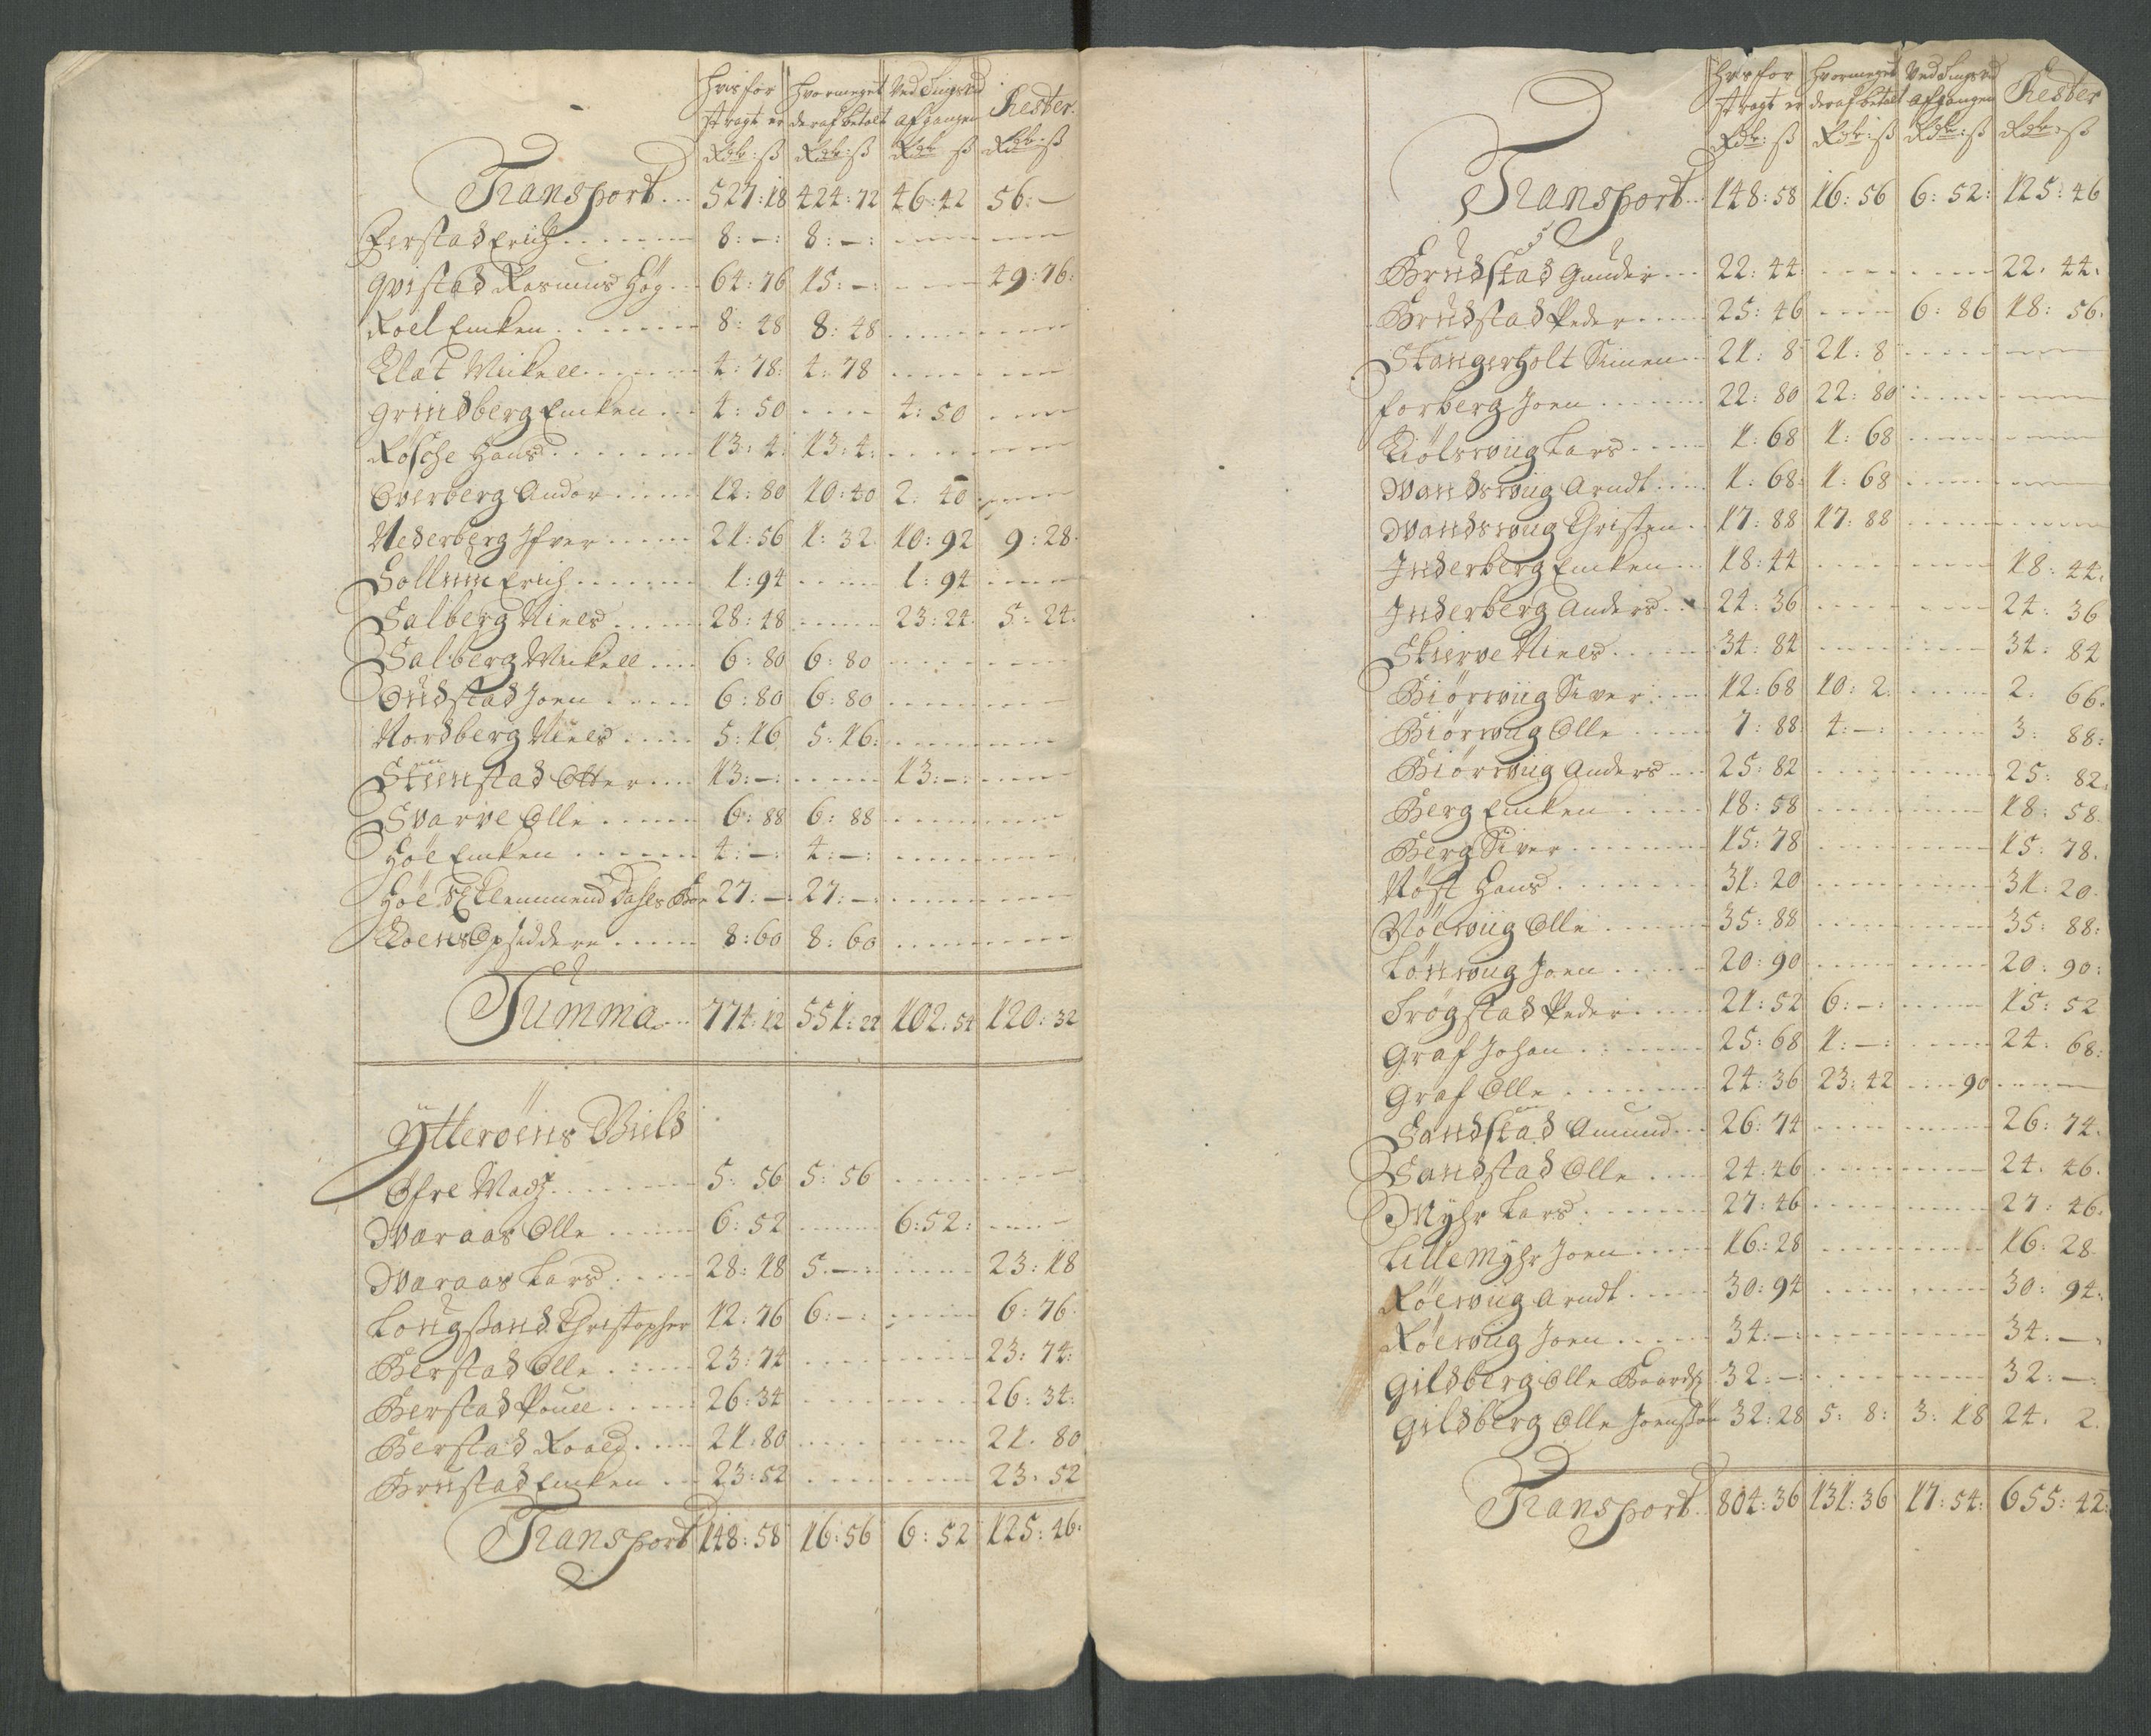 Hvis for Hvormeget Ved Tingsvid Rester.
stragt er deraf betalt afgangen
Rdlr: ß Rdlr: ß Rdlr ß Rdlr: ß
Transport... 527:18 424:72 46:42 56:—
Ferstad Erich...... 8:—: 8:—:
Qvistad Rasmus Høg... 64:76 15:—: 49:76:
Roel Emken....... 8:48 8:48
Klæt Mickell...... 4:78: 4:78
Grindberg Emken... 4:50 .... 4:50 ....
Røsche Hans....... 13:4: 13:4:
Overberg Andor..... 12:80 10:40 2:40
Nederberg Ifver..... 21:56 1:32 10:92 9:28.
Sollum Erich....... 1:94 ..... 1:94
Salberg Niels...... 28:48 ..... 23:24 5:24.
Salberg Mickell.... 6:80 6:80
Oudstad Joen..... 6:80 6:80
Nordberg Niels..... 5:16 5:16:
Steenstad Otter.... 13:—: ..... 13:—:
Svarve Olle...... 6:88 6:88
Høe Emken....... 4:—: 4:—:
Høe Sl Clemmend Dahls 27:—: 27:—:
Roens Opsiddere..... 8:60 8:60
Summa... 774:12 551:22 102:54 120:32
Ytterøens Bield
Øfre Madz....... 5:56 5:56
Waraas Olle...... 6:52 ..... 6:52:
Waraas Lars..... 28:18 5:—: ..... 23:18
Longsand Christopher 12:76 6:—: ..... 6:76.
Berstad Olle..... 23:74 ..... 23:74:
Berstad Pouel..... 26:34 ..... 26:34:
Berstad Roald..... 21:80 ..... 21:80
Brustad Emken... 23:52 ..... 23:52
Transport 148:58 16:56 6:52 125:46.
Hvis for Hvormeget Ved Tingsvid Rester
stragt er deraf betalt afgangen
Rdlr: ß Rdlr: ß Rdlr: ß Rdlr: ß
Transport.. 148:58 16:56 6:52: 125:46
Brudstad Gunder... 22:44: ..... 22:44.
Brudstad Peder..... 25:46 ..... 6:86 18:56.
Stangerholt Simen.. 21:8 21:8
Forberg Joen...... 22:80 22:80
Kiølsviig Lars..... 1:68 1:68
Wandsviig Arndt.... 1:68: 1:68
Wandsviig Christen.. 17:88 17:88
Inderberg Emken... 18:44 ..... 18:44.
Inderberg Anders... 24:36 ..... 24:36
Skierve Niels..... 34:84 ..... 34:84
Biørviig Siver.... 12:68 10:2. ..... 2:66.
Biørviig Olle..... 7:88 4:—: ..... 3:88:
Biørviig Anders... 25:82 ..... 25:82.
Berg Emken..... 18:58 ..... 18:58.
Berg Siver....... 15:78 ..... 15:78.
Nøst Hans....... 31:20 ..... 31:20.
Nøeviig Olle..... 35:88 ..... 35:88:
Lønviig Joen...... 20:90 ..... 20:90:
Trøgstad Peder.... 21:52 6:—: ..... 15:52
Graf Johan....... 25:68 1:—: ..... 24:68:
Graf Olle....... 24:36 23:42 ....90
Sandstad Amund... 26:74 ..... 26:74.
Sandstad Olle.... 24:46 ..... 24:46.
Myhr Lars....... 27:46 ..... 27:46.
Lille Myhr Joen.... 16:28 ..... 16:28.
Røeviig Arndt..... 30:94 ..... 30:94.
Røeviig Joen..... 34:—: ..... 34:—:
Gildberg Olle 32:—: ..... 32:—:
Gildberg Olle Joenssøn 32:28 5:8: 3:18 24:2.
Transport.. 804:36 131:36 17:54: 655:42: